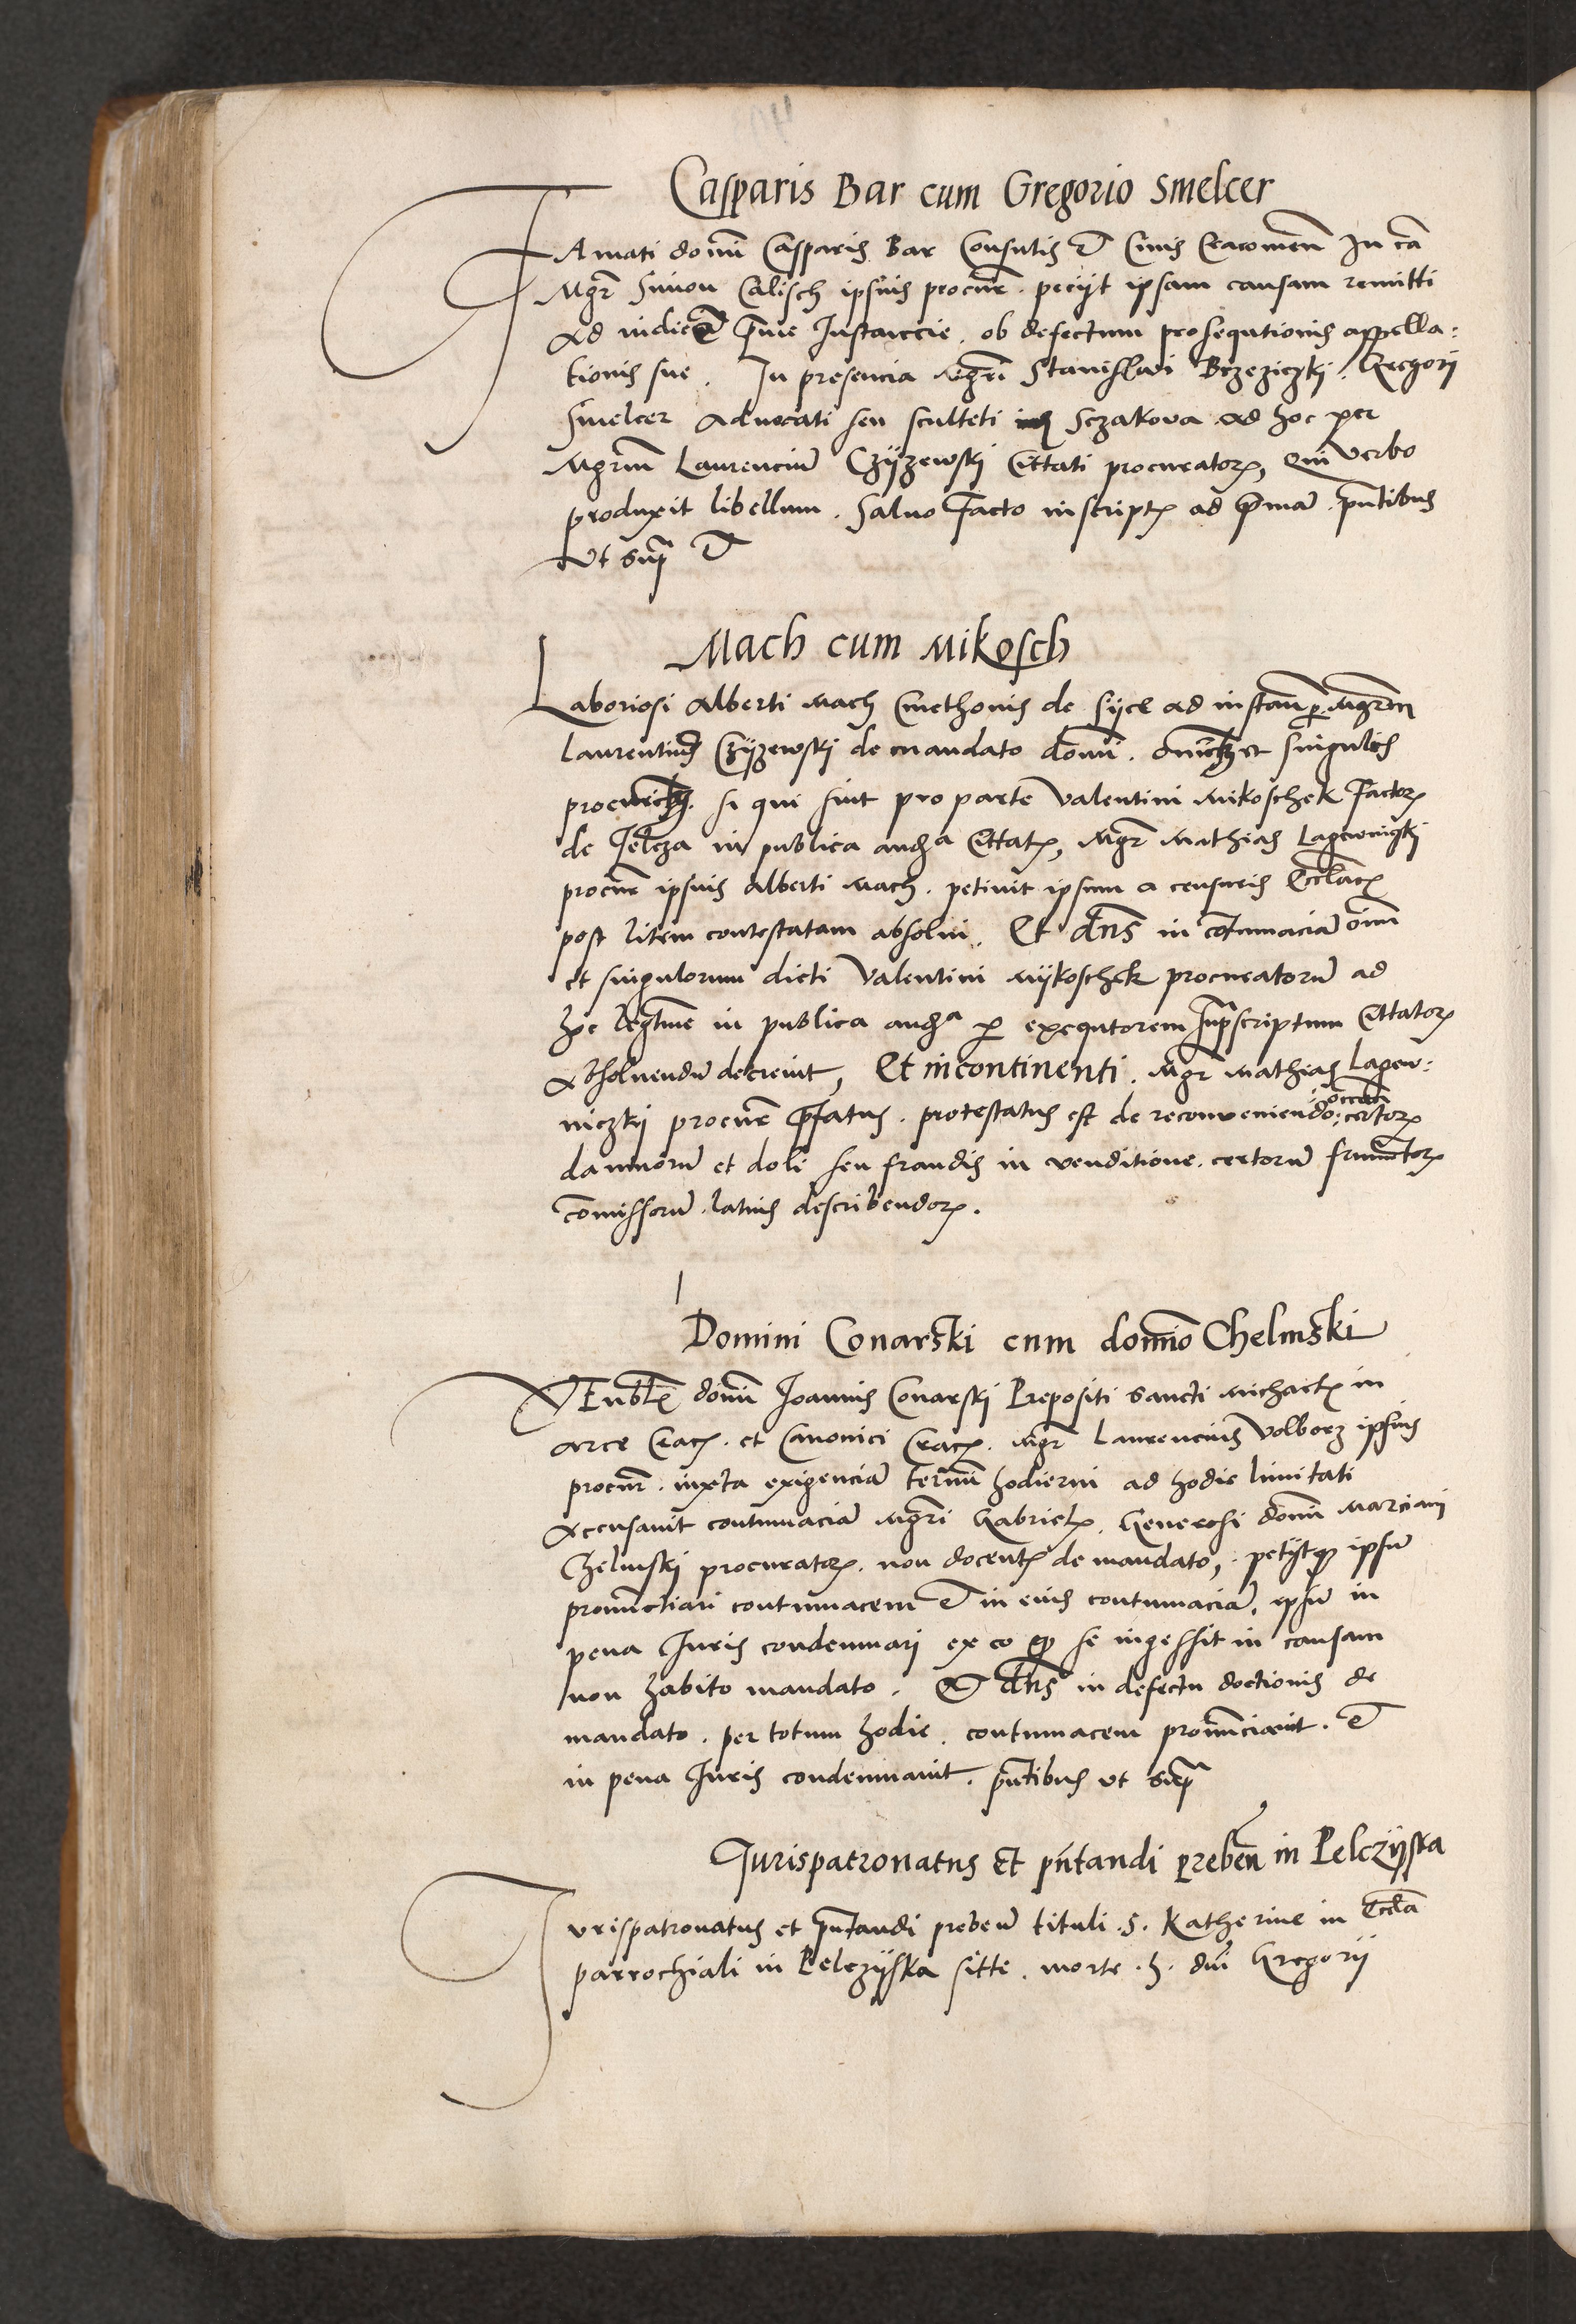 Casparis Bar cum Gregorio Smelcer
FAmati domini Casparis Bar Consulis et Civis Cracovien̄ In cā
Mgr̄ Simon Calisch ipsius procur̄. petijt ipsam causam remitti
Ad iudicem p̄me Instanccie. ob defectum prosequtionis appella:
tionis sue. In presencia mgr̄i Stanislai Brzeziczki. Gregorij
Smelcer Advocati seu sculteti Sczakova ad hoc per
Mgrum Laurenciū Czijzewski Cittati procuratoris, Qui verbo
produxit libellum. Salvo facto inscriptis ad p̄mā. pn̄tibus
Ut sup̄ et
Mach cum Mikosch
Laboriosi Alberti Mach Cmethonis de sijce ad instan̄ p̄ Mgr̄m
Laurentiuū Czijzewski de mandato domini. et singulis
si qui sint pro parte Valentini Mikoschek factoris
de Jelcza in publica audᵃ Cittatis, Mgr̄ Mathias Lagewniczki
procur̄ ipsius Alberti Mach. petivit ipsum a censuris Eccl̄acis
post litem contestatam absolvi. Et dn̄s in cōtumaciā om̄
et singulorum dicti Valentini Mijkoschek procuratorū ad
hoc legitime in publica audᵃ per exequtorem sup̄scriptum Cittatoꝝ
Absoluendū decrevit, Et incontinenti. Mgr̄ Mathias Lagew:
niczkij procur̄ p̄fatus. protestatus est de reconveniendo: certoꝝ
damnorū et doli seu fraudis in venditione. certorū frumentoꝝ
cōmissorū. latius describendoꝝ.
Domini Conarski cum domino Chelmski
VEnblis domini Joannis Conarski Prepositi sancti Michaelis in
arce Crac. et Canonici Crac. Mgr̄ Laurencius Volborz ipsius
procur̄. iuxta exigenciā termini hodierni ad hodie limitati
Accusavit contumaciā Mgr̄i Gabrielis. Generosi domini Marciani
Chelmski procuratoris. non docentis de mandato, petijtqꝫ ipsū
pronunctiari contumacem et in eius contumaciā. ipsū in
pena Iuris condemnari ex eo qꝫ se ingessit in causam
non habito mandato. Et dn̄s in defectu doctionis de
mandato. per totum hodie. contumacem pronūnciavit. et
in pena Iuris condemnavit. pn̄tibus ut sup̄
Jurispatronatus Et pn̄tandi preben̄ in Pelczijska
Jurispatronatus et pn̄tandi prebem̄ tituli .S. Katherine in Eccl̄a
parrochiali in Pelczijska sitte. morte .h. dn̄i Gregorij